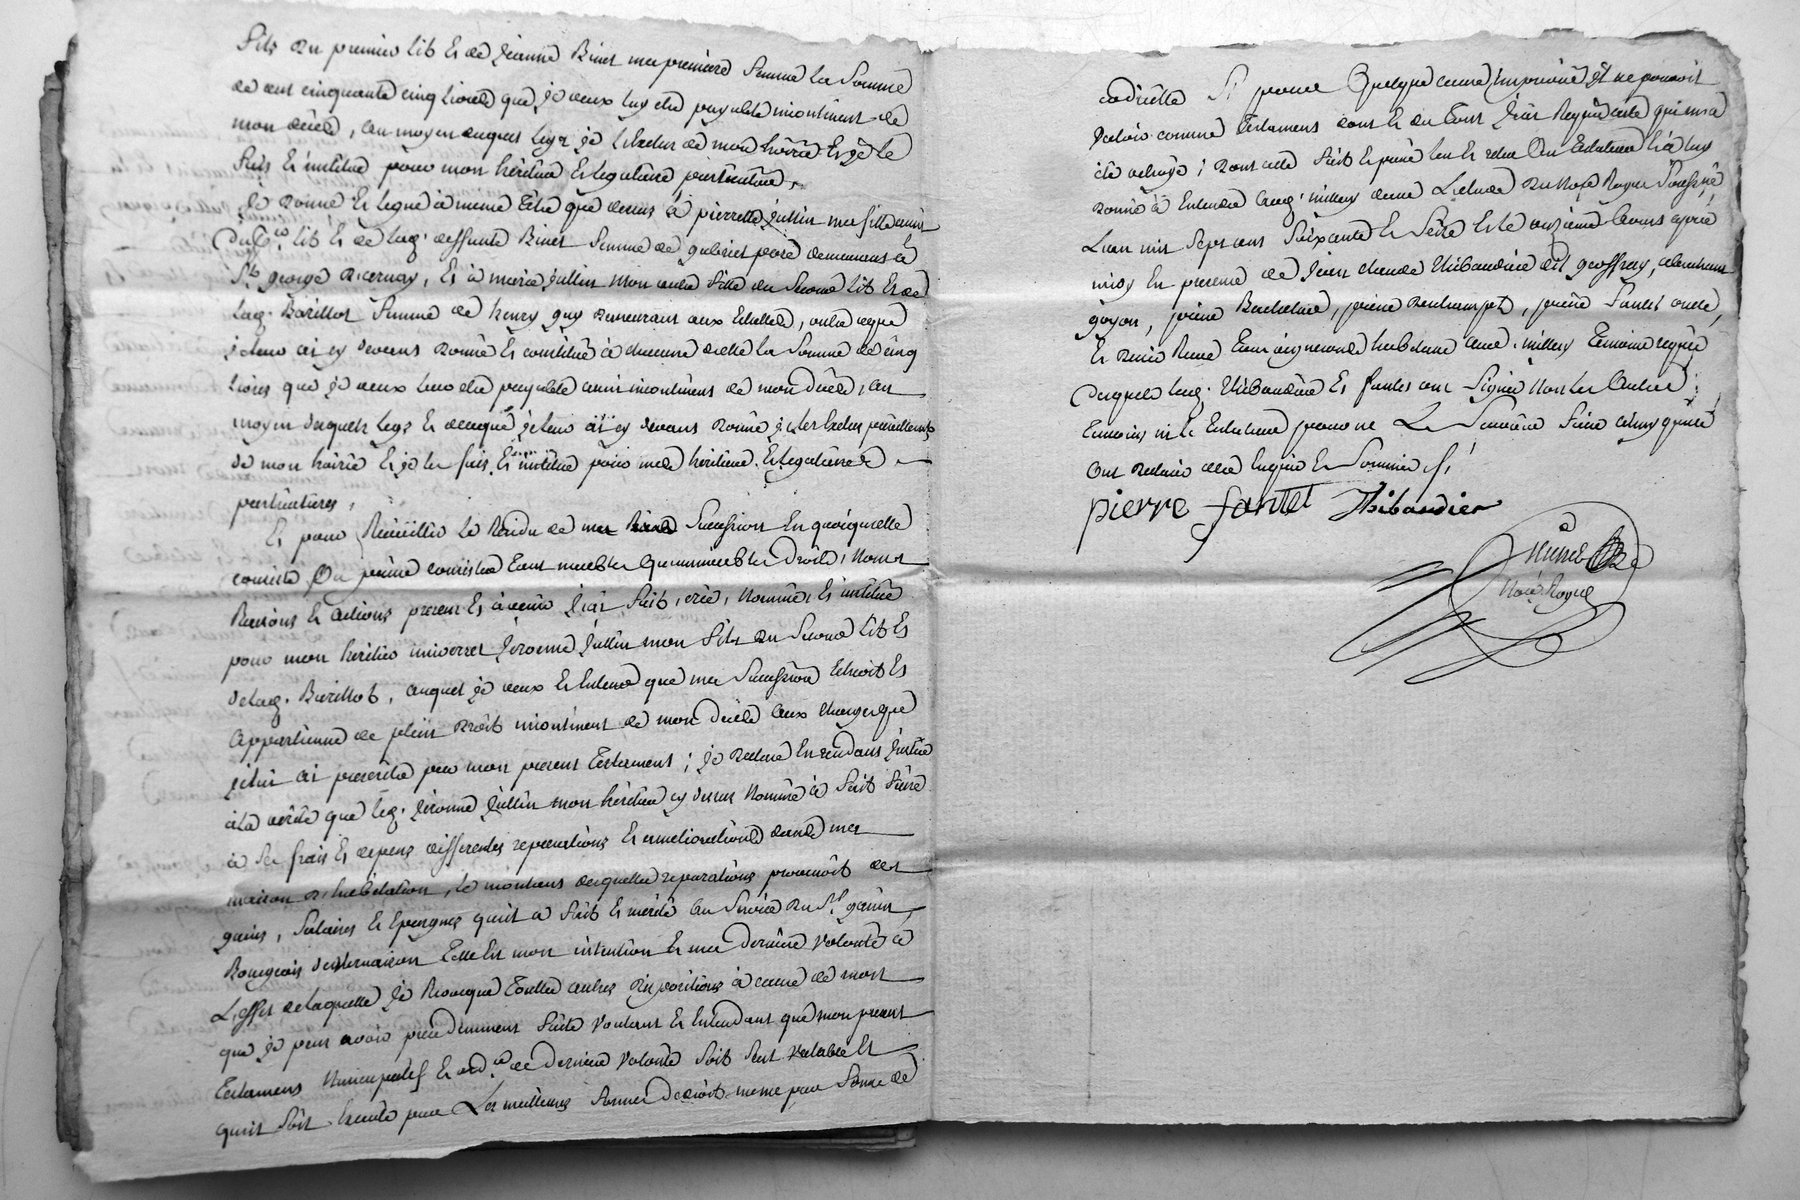 fils du premier lit et de jeanne Binet ma premiere femme la somme
de cent cinquante cinq livres que je veux luy etre payable incontinent de
mon décéd, au moyen duquel legs je l'exclus de mon hoirie et je le
fais et institue pour mon héritier et legataire particulier,
je donne et legue à meme titre que dessus à pierrette jullin ma fille aussi
du lit et de lad. deffunte Binet femme de gabriel demeurant à
St. george, et à marie jullin mon autre fille du second lit et de
lad. Barillot femme de henry guy demeurant aux Echelles, outre ceque
jeleur ai cy devant donné et constitué à chacune delle la somme de cinq
livres que je veux leur etre payable aussi incontinent de mon décéd, au
moyen desquels legs et de ceque jeleur ai cy devant donné je les exclus pareillement
de mon hoirie et je les fais et institue pour mes héritieres et legataires
particulieres,
Et pour Recüeillir le Residu de ma succession en quoiquelle
consiste ou puisse consister tant meubles qu'immeubles droits, noms
Raisons et actions presents et avenir j'ai fait, créé, nommé, et institué
pour mon héritier universel jerome jullin mon fils du second lit et
delad. Barillot, auquel je veux et entend que ma succession echoit et
appartienne de plein droit incontinent de mon décéd aux charges que
jelui ai prescrite par mon present testament; je declare en rendant justice
à la vérité que led. jérome jullin mon héritier cy dessus nommé à fait faire
à ses frais et depens differentes reparations et ameliorations dans mes
maison d'habitation, le montant desquelles reparations provenoit des
gains, salaires et epargnes qu'il a fait et mérité au service du Sr. garin,
Bourgeois de vernaison telle est mon intention et ma derniere volonté à
L'effet de laquelle je Revoque toutes autres dispositions à cause de mort
que je peux avoir precedemment faite voulant et entendant que mon present
testament nuncupatif et ord.ce de derniere volonté soit seul valable et
quil soit executé par Les meilleures formes de droit meme par forme de
codicille si pour quelque cause imprévüe il ne pouvoit
valoir comme testament dont et du tout j'ai Requis acte qui m'a
été octroyé; dont acte fait et passé leu et releu au testateur et à luy
donné à entendre aud. millery dans L'etude du No.re Royal soussigné
L'an mil sept cent soixante et seize et le onzieme mars après
midy en presence de jean claude thibaudier dit geoffray, 
goyon, pierre, pierre, pierre fantet,
et tous vignerons habitans aud. millery temoins requis
desquels led. thibaudier et fantet ont signé non les autres
temoins ni le testateur pour ne Le sçavoir faire ainsy quils
ont declaré de ce enquis et sommés /.
pierre fantet Thibaudier
No.re Royal